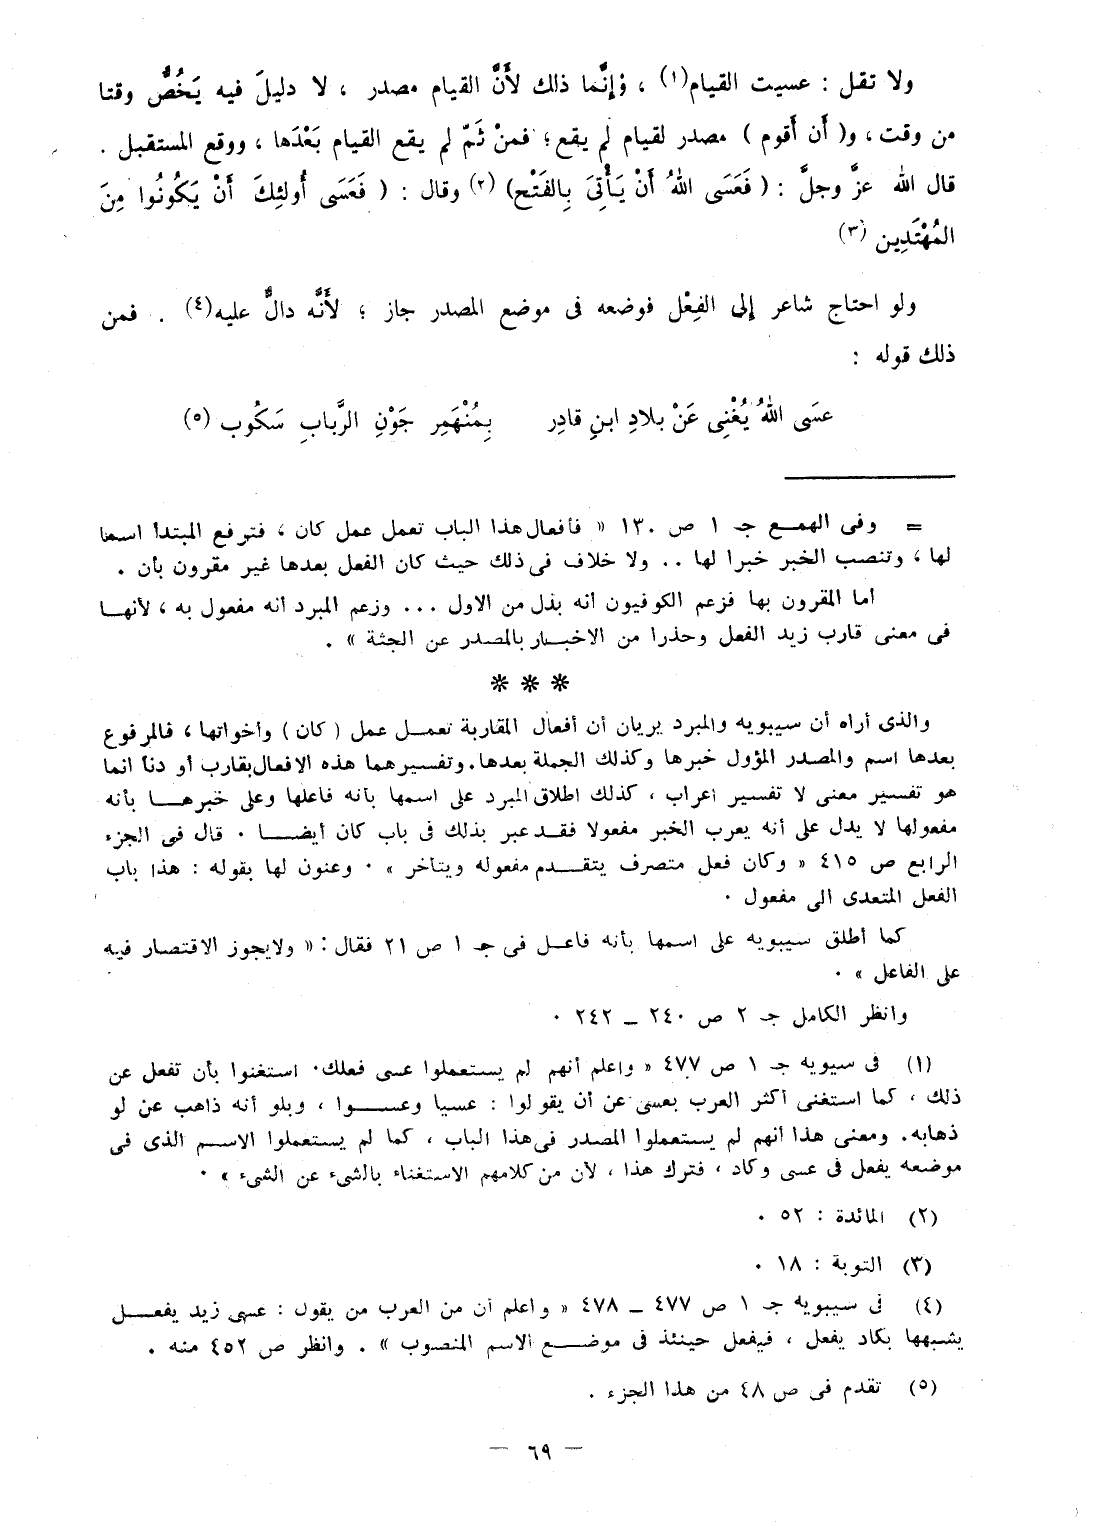 ولا تقل : عسيت القيام(١) ، وُإِنَّما ذلك لأَنَّ القيام مصدر ، لا دليلَ فيه يَخُصُّ وقتا
من وقت ، و( أَن أَقوم ) مصدر لقيام لم يقع ؛ فمنْ ثَمّ لم يقع القيام بَعْدَها ، ووقع المستقبل .
قال الله عزَّ وجلَّ : ( فَعَسَى اللهُ أَنْ يَأْتِىَ بِالفَتْح) (٢) وقال : ( فَعَسَى أُولئِكَ أَنْ يَكُونُوا مِنَ
المُهْتَدِين (٣)
ولو احتاج شاعر إِلى الفِعْل فوضعه فى موضع المصدر جاز ؛ لأَنَّه دالٌّ عليه(٤) . فمن
ذلك قوله :
عسَى اللهُ يُغْنِى عَنْ بلادِ ابنِ قادِر بِمُنْهَمِر جَوْنِ الرَّبابِ سَكُوب (٥)
= وفى الهمـع جـ ١ ص ١٣٠ « فأفعال هذا الباب تعمل عمل كان ، فترفع المبتدأ اسما
لها ، وتنصب الخبر خبرا لها .. ولا خلاف فى ذلك حيث كان الفعل بعدها غير مقرون بأن .
أما المقرون بها فزعم الكوفيون أنه بدل من الاول ... وزعم المبرد أنه مفعول به ، لأنهـا
فى معنى قارب زيد الفعل وحذرا من الاخبـار بالمصدر عن الجثة » .
***
والذى أراه أن سيبويه والمبرد يريان أن أفعال المقاربة تعمـل عمل ( كان ) وأخواتها ، فالمرفوع
بعدها اسم والمصدر المؤول خبرها وكذلك الجملة بعدها. وتفسيرهما هذه الافعال بقارب أو دنا انما
هو تفسير معنى لا تفسير اعراب ، كذلك اطلاق المبرد على اسمها بأنه فاعلها وعلى خبرهـا بأنه
مفعولها لا يدل على أنه يعرب الخبر مفعولا فقـد عبر بذلك فى باب كان أيضـا . قال فى الجزء
الرابع ص ٤١٥ « وكان فعل متصرف يتقـدم مفعوله ويتأخر » . وعنون لها بقوله : هذا باب
الفعل المتعدى الى مفعول .
كما أطلق سيبويه على اسمها بأنه فاعـل فى جـ ١ ص ٢١ فقال : « ولايجوز الاقتصار فيه
على الفاعل » .
وانظر الكامل جـ ٢ ص ٢٤٠ ــ ٢٤٢ .
(١) فى سيبويه جـ ١ ص ٤٧٧ « واعلم أنهم لم يستعملوا عسى فعلك . استغنوا بأن تفعل عن
ذلك ، كما استغنى أكثر العرب بعسى عن أن يقولوا : عسيا وعسـوا ، وبلو أنه ذاهب عن لو
ذهابه. ومعنى هذا أنهم لم يستعملوا المصدر فى هذا الباب ، كما لم يستعملوا الاسـم الذى فى
موضعه يفعل فى عسى وكاد ، فترك هذا ، لأن من كلامهم الاستغناء بالشىء عن الشىء » .
(٢) المائدة : ٥٢ .
(٣) التوبة : ١٨ .
(٤) فى سيبويه جـ ١ ص ٤٧٧ ــ ٤٧٨ « واعلم أن من العرب من يقول : عسى زيد يفعـل
يشـبهها بكاد يفعل ، فيفعل حينئذ فى موضـع الاسم المنصوب » . وانظر ص ٤٥٢ منه .
(٥) تقدم فى ص ٤٨ من هذا الجزء .
— ٦٩ —